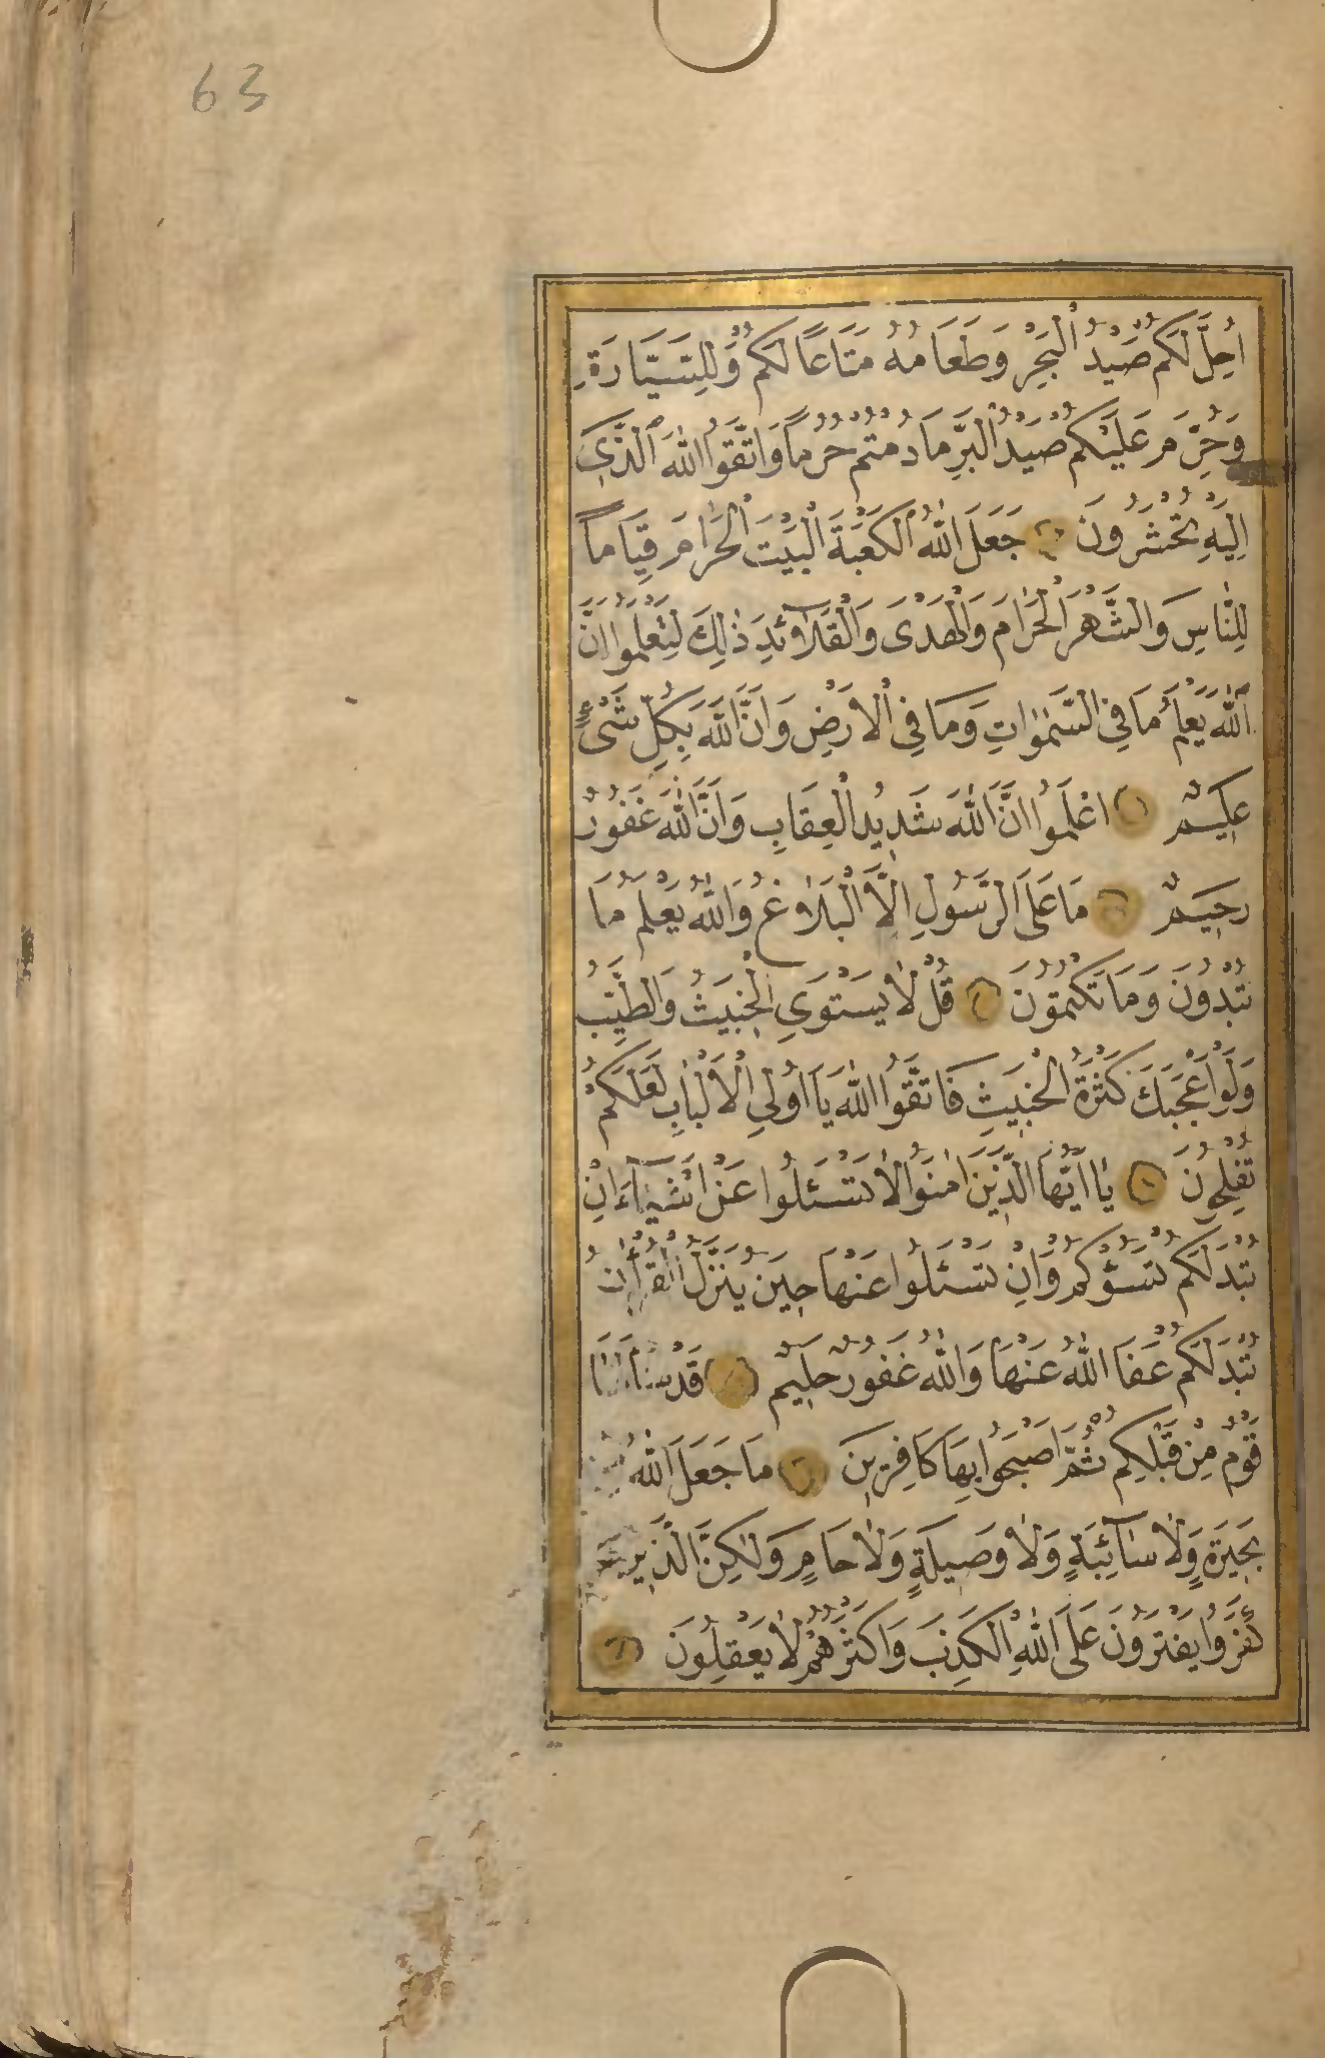 63
اُحِلَّ لَكُمْ صَيْدُ الْبَحْرِ وَطَعَامُهُ مَتَاعًا لَكُمْ وَلِلسَّيَّارَةِ
وَحُرِّمَ عَلَيْكُمْ صَيْدُ الْبَرِّ مَا دُمْتُمْ حُرُمًا وَاتَّقُوا اللّٰهَ الَّذِي
اِلَيْهِ تُحْشَرُونَ جَعَلَ اللّٰهُ الْكَعْبَةَ الْبَيْتَ الْحَرَامَ قِيَامًا
لِلنَّاسِ وَالشَّهْرَ الْحَرَامَ وَالْهَدْىَ وَالْقَلَآئِدَ ذٰلِكَ لِتَعْلَمُوا اَنَّ
اللّٰهَ يَعْلَمُ مَا فِي السَّمٰوَاتِ وَمَا فِي الْاَرْضِ وَاَنَّ اللّٰهَ بِكُلِّ شَىْءٍ
عَلِيمٌ اعْلَمُوا اَنَّ اللّٰهَ شَدِيدُ الْعِقَابِ وَاَنَّ اللّٰهَ غَفُورٌ
رَحِيمٌ مَا عَلَى الرَّسُولِ اِلَّا الْبَلَاغُ وَاللّٰهُ يَعْلَمُ مَا
تُبْدُونَ وَمَا تَكْتُمُونَ قُلْ لَا يَسْتَوِي الْخَبِيثُ وَالطَّيِّبُ
وَلَوْ اَعْجَبَكَ كَثْرَةُ الْخَبِيثِ فَاتَّقُوا اللّٰهَ يَا اُولِي الْاَلْبَابِ لَعَلَّكُمْ
تُفْلِحُونَ يَا اَيُّهَا الَّذِينَ اٰمَنُوا لَا تَسْـَٔلُوا عَنْ اَشْيَآءَ اِنْ
تُبْدَ لَكُمْ تَسُؤْكُمْ وَاِنْ تَسْـَٔلُوا عَنْهَا حِينَ يُنَزَّلُ الْقُرْاٰنُ
تُبْدَ لَكُمْ عَفَا اللّٰهُ عَنْهَا وَاللّٰهُ غَفُورٌ حَلِيمٌ قَدْ سَاَلَهَا
قَوْمٌ مِنْ قَبْلِكُمْ ثُمَّ اَصْبَحُوا بِهَا كَافِرِينَ مَا جَعَلَ اللّٰهُ مِنْ
بَحِيرَةٍ وَلَا سَآئِبَةٍ وَلَا وَصِيلَةٍ وَلَا حَامٍ وَلٰكِنَّ الَّذِينَ
كَفَرُوا يَفْتَرُونَ عَلَى اللّٰهِ الْكَذِبَ وَاَكْثَرُهُمْ لَا يَعْقِلُونَ